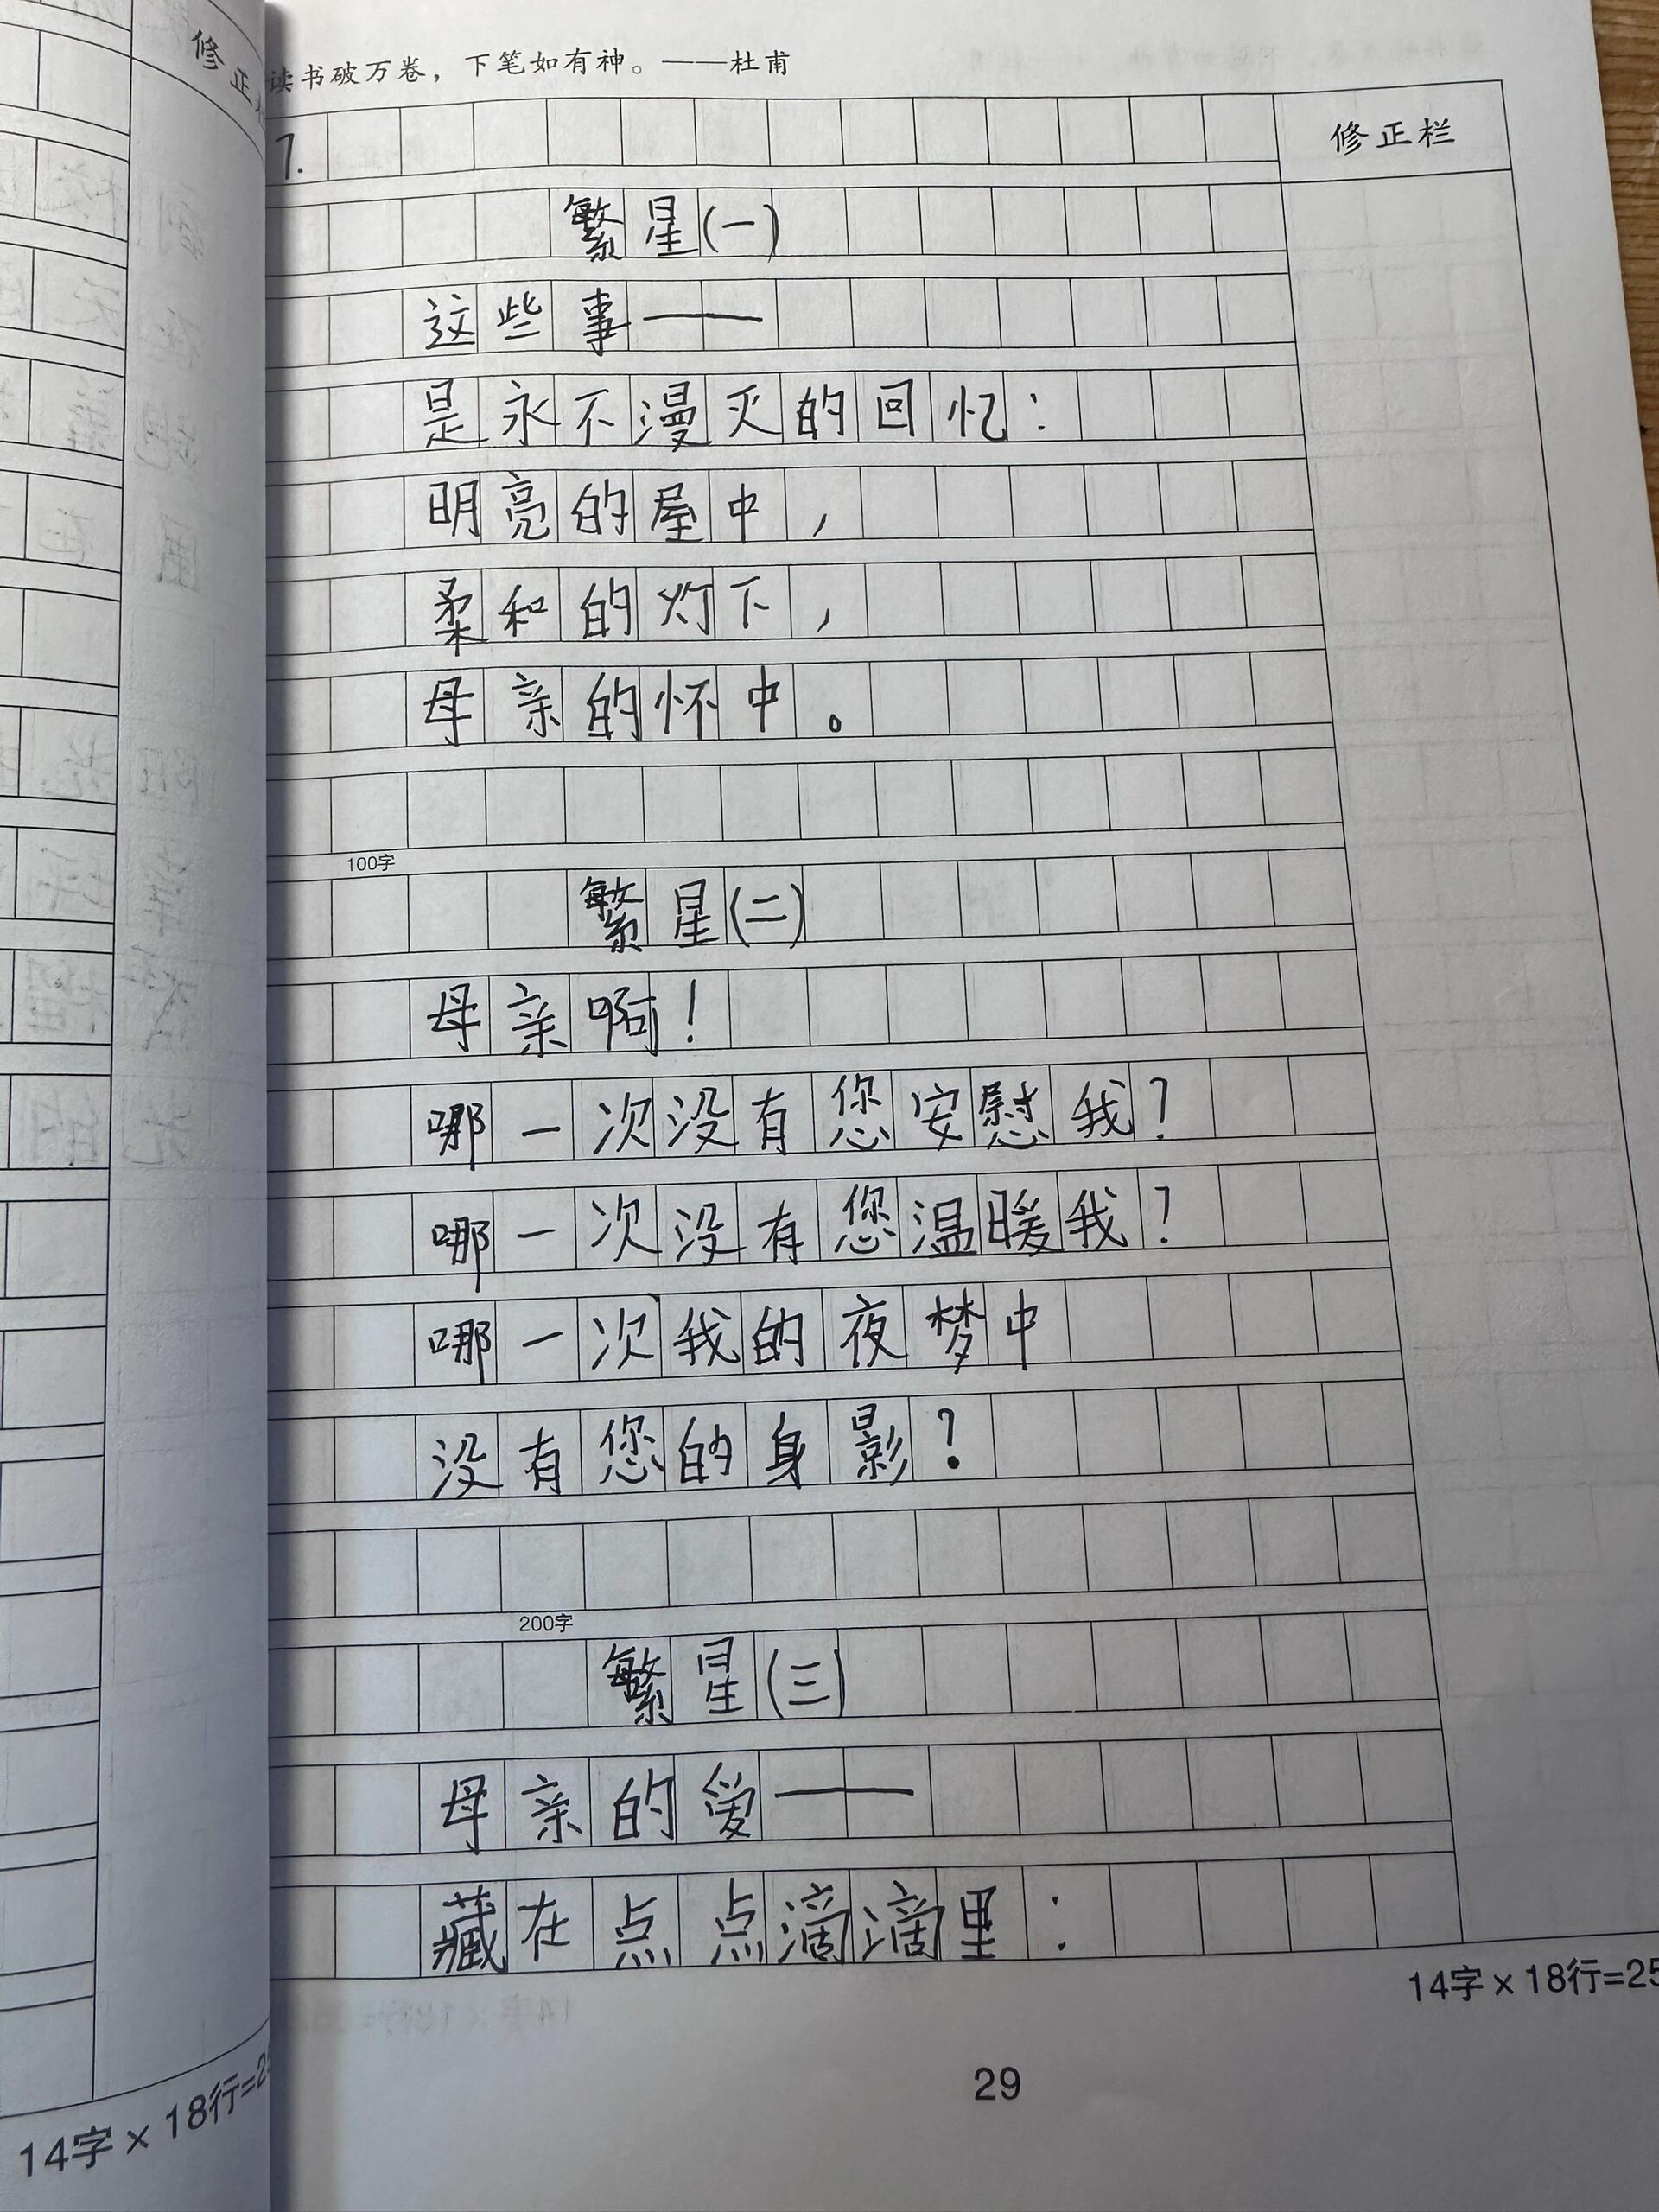 修正
读书破万卷，下笔如有神。——杜甫
修正栏
7.
繁星(一)
这些事——
是永不漫灭的回忆：
明亮的屋中，
柔和的灯下，
母亲的怀中。
100字
繁星(二)
母亲啊！
哪一次没有您安慰我？
哪一次没有您温暖我？
哪一次我的夜梦中
没有您的身影？
200字
繁星(三)
母亲的爱——
藏在点点滴滴里：
14字×18行=25
29
14字×18行=25